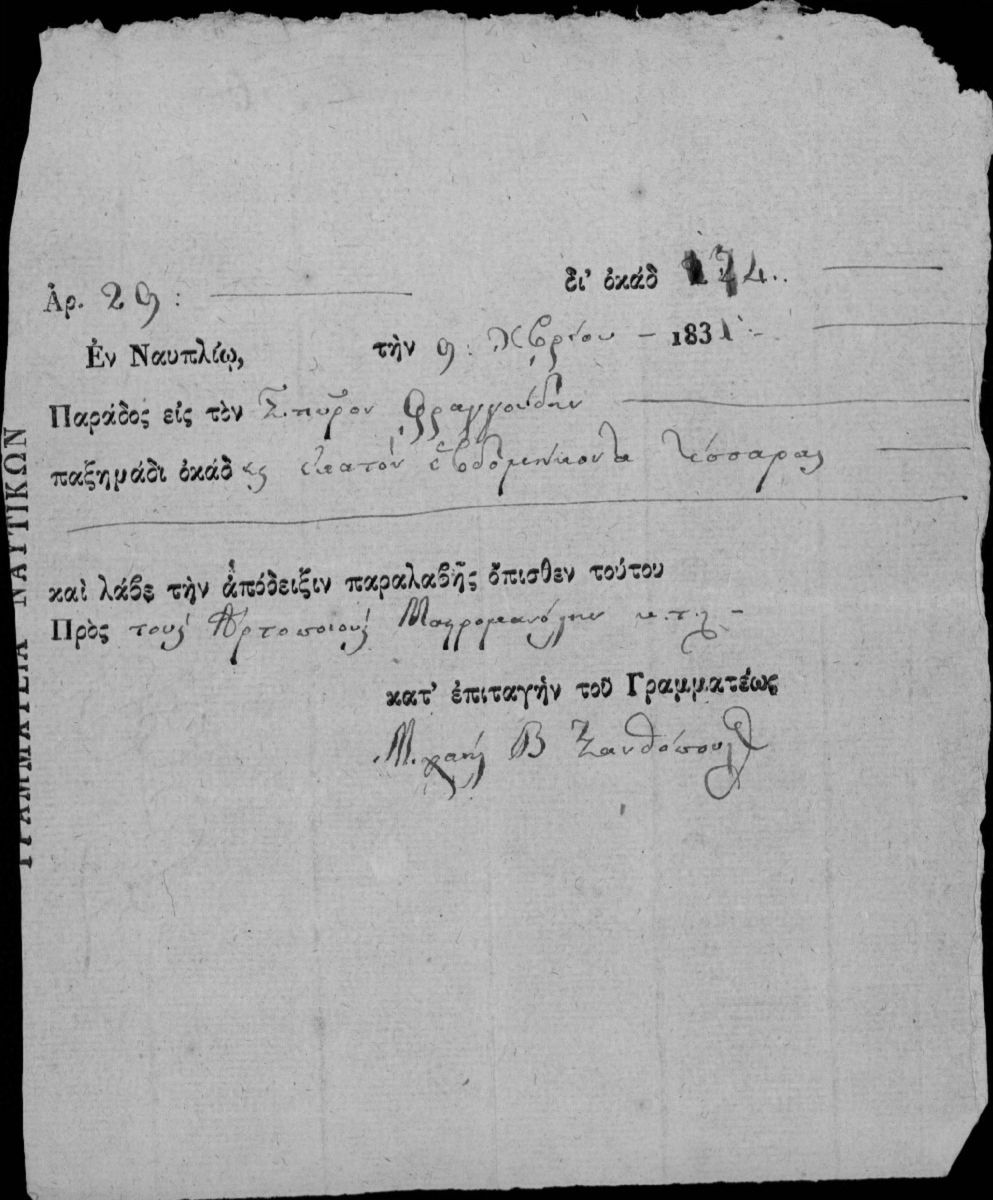 ΓΡΑΜΜΑΤΕΙΑ ΝΑΥΤΙΚΩΝ
Ἀρ. 29: δι' ὀκάδ 174..
Ἐν Ναυπλίῳ, τὴν 9: Χβρίου - 1831 -
Παράδος εἰς τὸν Σπύρον Φραγγούδην
παξημάδι ὀκάδες ἑκατὸν ἑβδομήκοντα τέσσαρας
καὶ λάβε τὴν ἀπόδειξιν παραλαβῆς ὄπισθεν τούτου
Πρὸς τοὺς Ἀρτοποιοὺς κ.τ.λ -
κατ' ἐπιταγὴν τοῦ Γραμματέως
Β Ξανθόπουλος